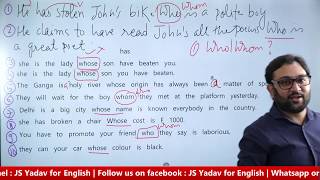 ① He has stolen John's bike. Who is a polite boy whom
② He claims to have read John's all the poems Who is
a great poet. has ① Who/Whom?
③ she is the lady whose son have beaten you.
④ she is the lady whose son have beaten you.
⑤ The Ganga is a holy river whose origin has always been a matter of
⑥ They will wait for the boy whom they met at the platform yesterday.
⑦ Delhi is a big city whose name is known everybody in the country.
⑧ she has broken a chair Whose cost is ₹ 1000. whom
⑨ You have to promote your friend who they say is laborious,
⑩ they can your car whose colour is black.
nel : JS Yadav for English | Follow us on facebook : JS Yadav for English | Whatsapp or